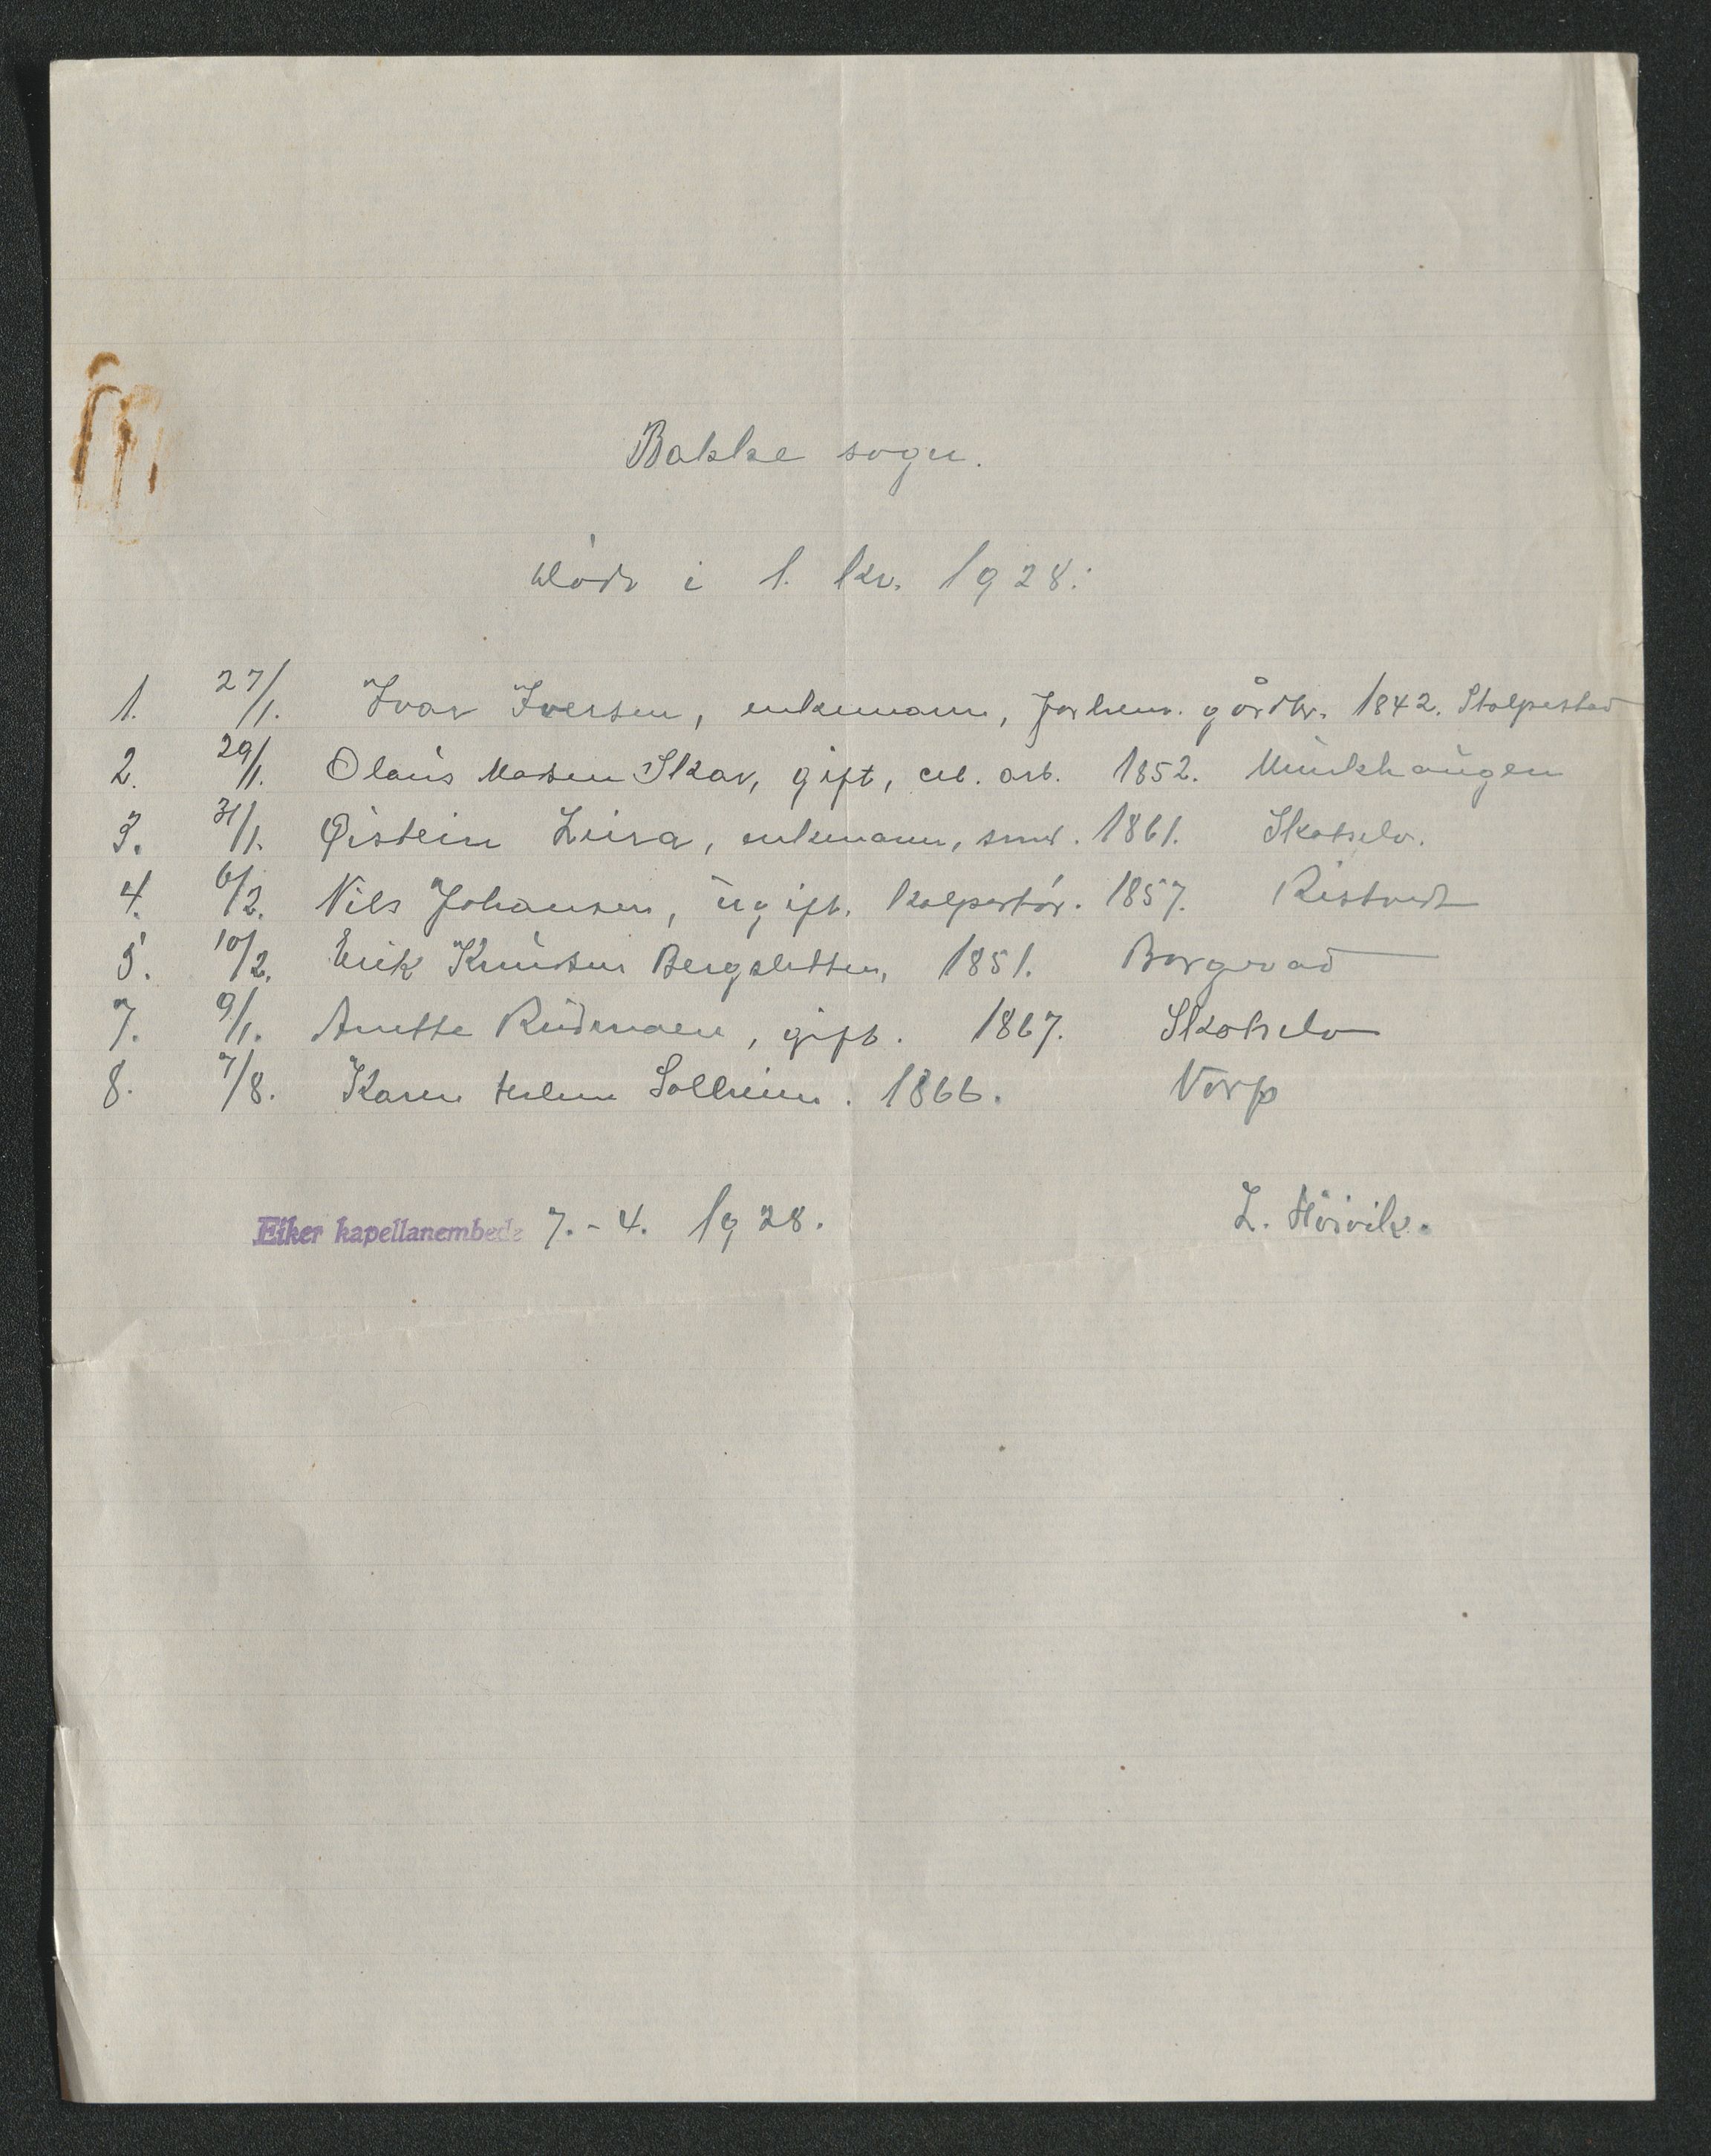 Bakke sogn.
døde i 1. kv. 1928:
1. 27/1. Ivar Iversen, enkemann, forhenv. gårdbr. 1842. Stolpestad
2. 29/1. Olaus Madsen Skar, gift, arb. 1852. Munkhaugen
3. 31/1. Øistein Lura, enkemann, smed. 1861. Skotselv.
4. 6/2. Nils Johansen, ugift. kolportør. 1857. Ristvedt
5. 10/2. Erik Knudsen Bergsletten, 1851. Borgevad
7. 9/1. Anette Rudmoen, gift. 1867. Skotselv
8. 7/8. Karen Helene Solheim. 1866. Vorp
Eiker kapellanembede 7.-4. 1928. L. Høivik.